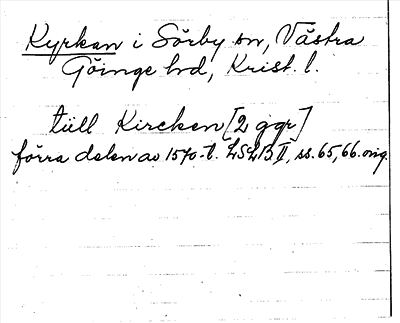 Kyrkan i Sörby sn, Västra
Göinge hd, Krist. l.
tüll Kircken [2 ggr]
förra delen av 1570-t. LSLB I, ss. 65, 66. orig.